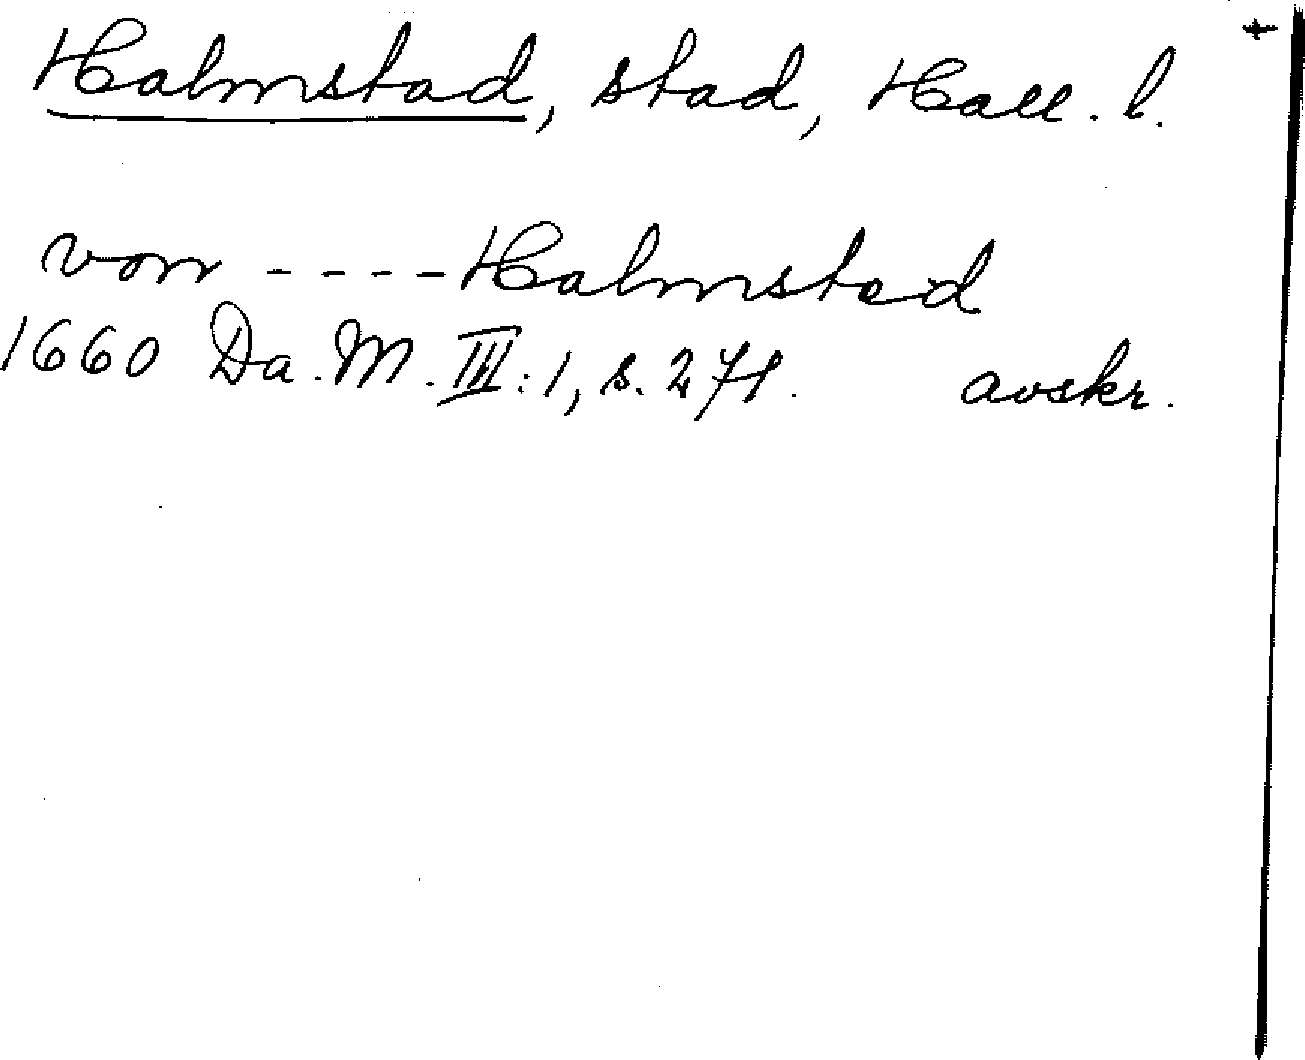 Halmstad, stad, Hall. l. +
von ----Halmsted
1660 Da. M. III:1, s. 271. avskr.